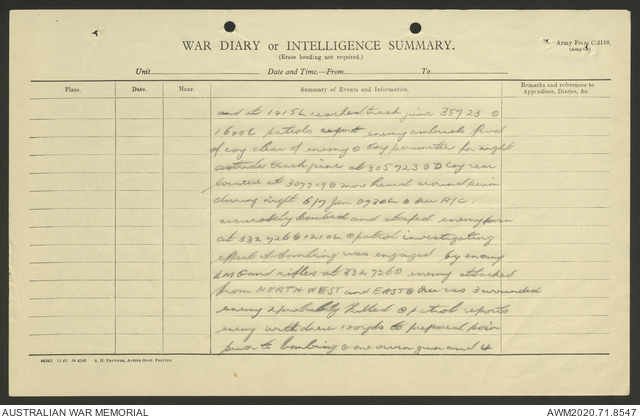 WAR DIARY or INTELLIGENCE SUMMARY.
(Erase heading not required.)
Army Form C.2118,
(Adapted)
Unit Date and Time.—From To
Place. Date. Hour. Summary of Events and Information. Remarks and references to Appendices, Diaries, &c.
and at 1015L reached track junc 35723 ⊙
1600L patrols report enemy ambush
of coy clear of enemy ⊙ Coy perimeter for night
astride track junc at 305723 ⊙ D Coy rear
located at 307719 ⊙ more heard around perim
during night 6/7 Jun 0730L ⊙ our A/C
accurately bombed and strafed enemy posn
at 332726 ⊙ 1210L ⊙ patrol investigating
effect of bombing was engaged by enemy
LMG and rifles at 332726 ⊙ enemy attacked
from NORTH WEST and EAST ⊙ Our cas 3 wounded
enemy 2 probably killed ⊙ patrol reports
enemy withdrew 100yds to prepared posn
prior to bombing ⊙ one owen gun and 4
A. H. Pettifer, Acting Govt. Printer.
AUSTRALIAN WAR MEMORIAL
AWM2020.71.8547